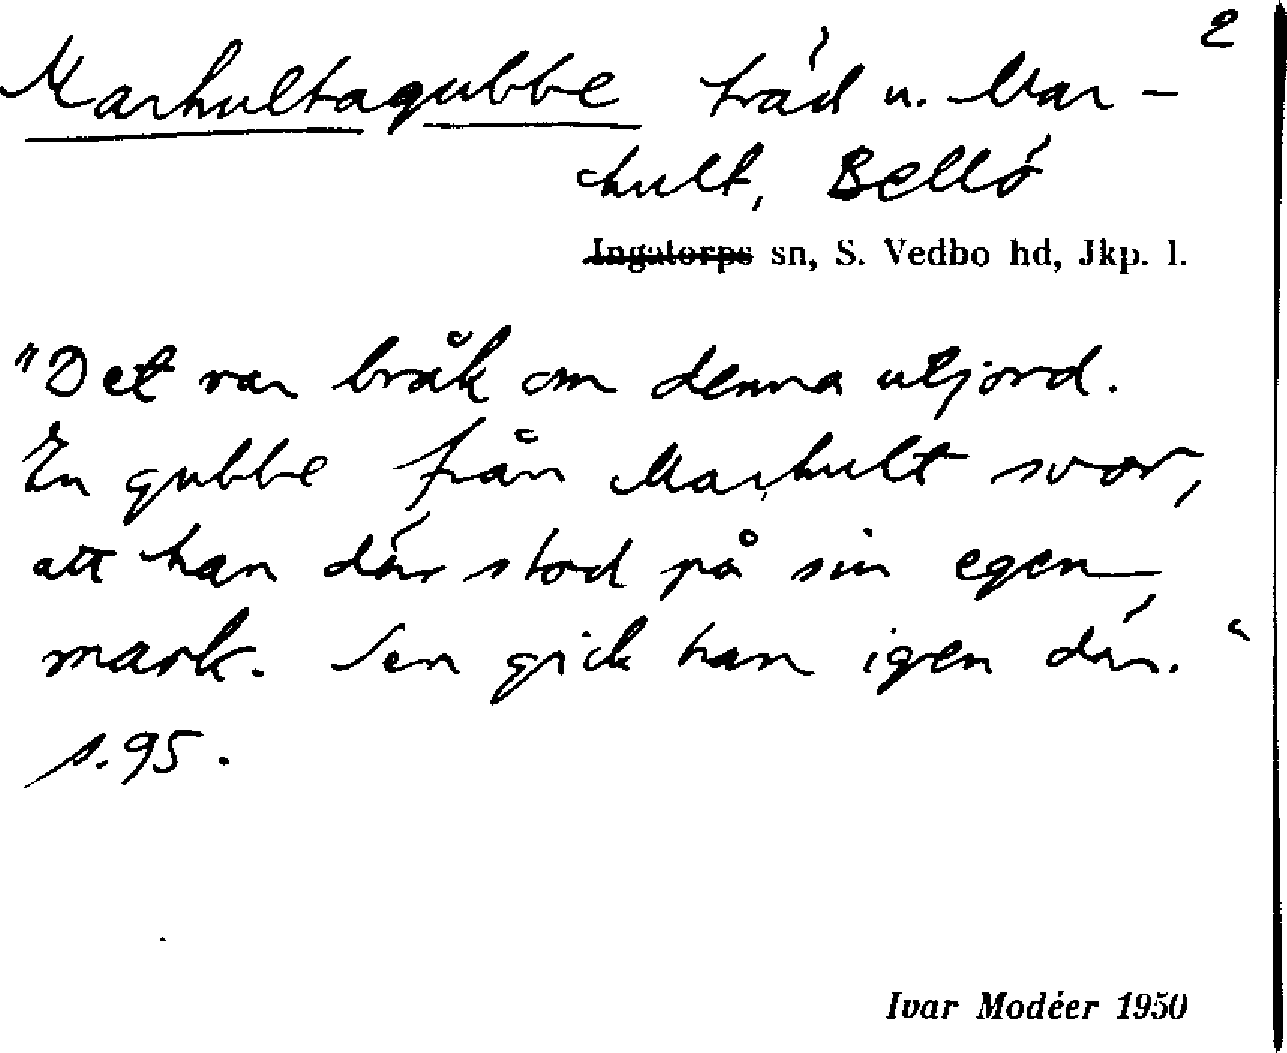 2
Marhultagubbe träd u. Mar-
hult, Bellö
Ingatorps sn, S. Vedbo hd, Jkp. l.
"Det var bråk om denna utjord.
En gubbe från Marhult svor,
att han där stod på sin egen
mark. Sen gick han igen där."
s. 95.
Ivar Modéer 1950